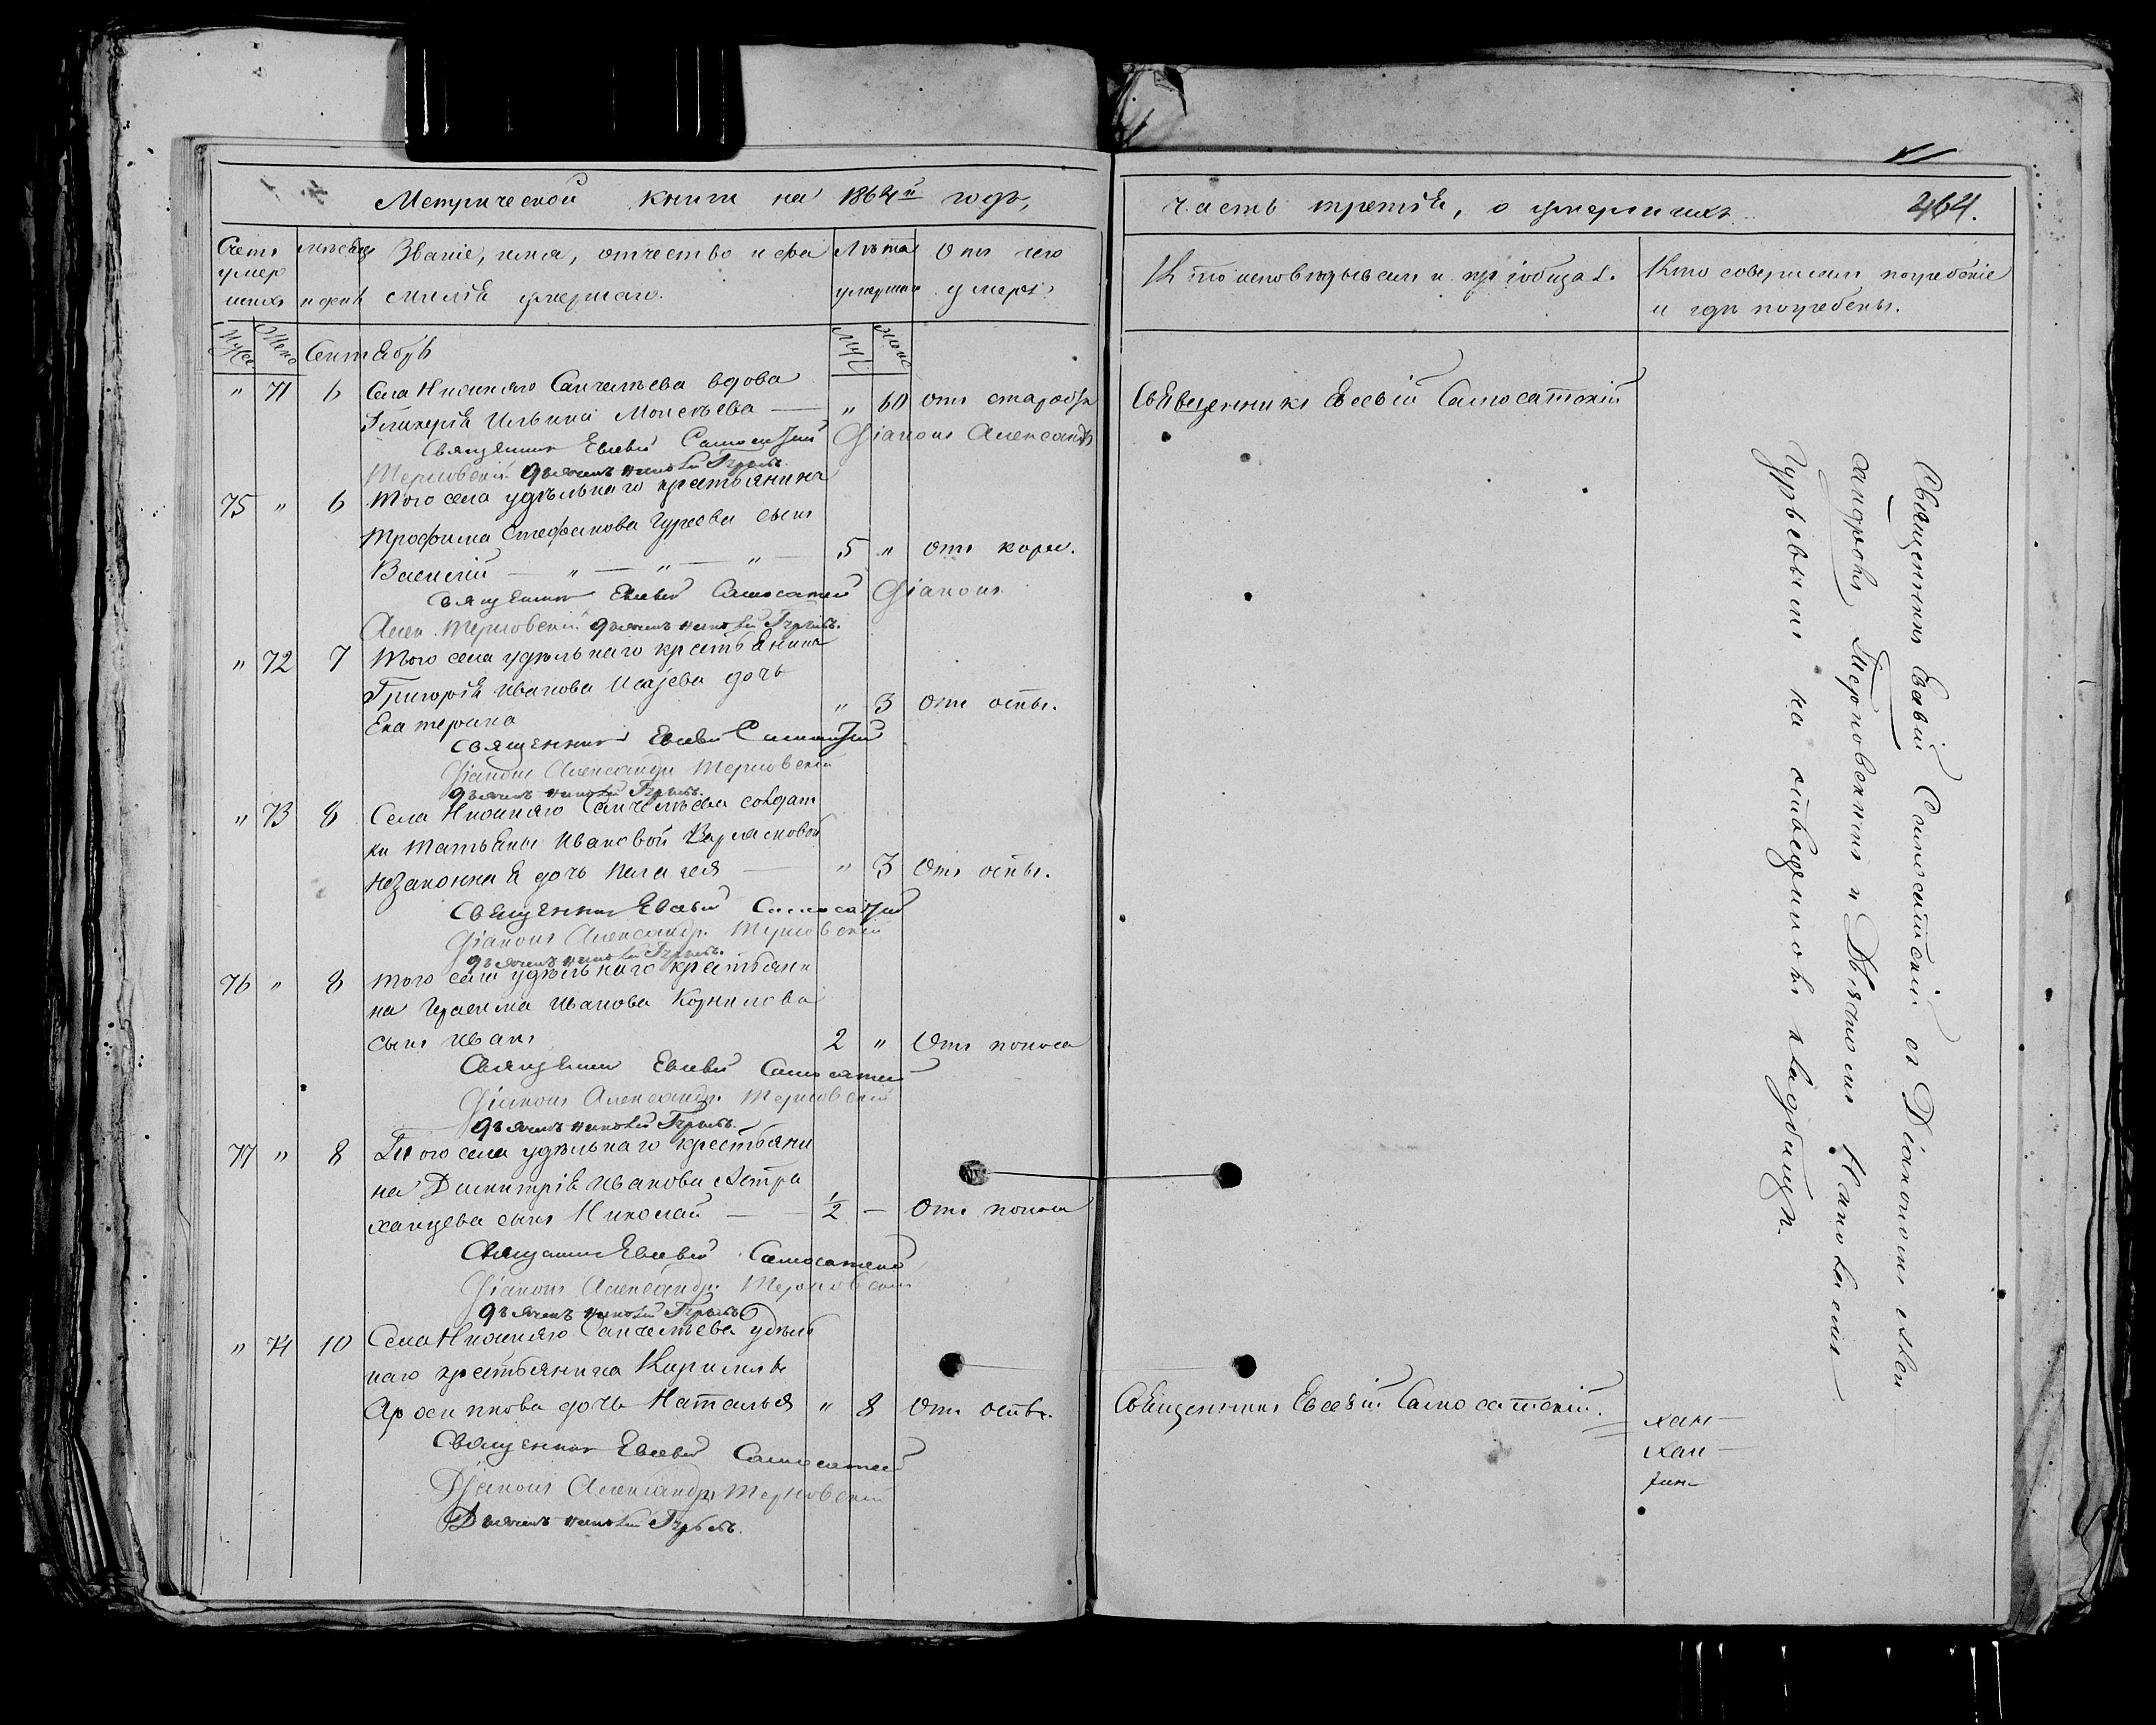 Метрической книги на 1864й годъ,
Счетъ умершихъ
Мѣсяцъ и день
Званіе, имя, отчество и фамилія умершаго.
Лѣта умершихъ
Отъ чего умеръ.
Муж. Жен.
Муж. Жен.
Сентябрь
" 71 6 Села Нижняго Санчелѣева вдова
Гликерія Ильина Моисѣева — " 60 отъ старости
Священникъ Евсевій Самосатскій Діаконъ Александръ
Терновскій. Дьячекъ Николай Гурьевъ.
75 " 6 Того села удѣльнаго крестьянина
Трофима Стефанова Гурьева сынъ
Василій — " — " — " — 5 " Отъ кори.
Священникъ Евсевій Самосатскій Діаконъ
Алек. Терновскій. Дьячекъ Николай Гурьевъ.
" 72 7 Того села удѣльнаго крестьянина
Григорія Иванова Исаева дочь
Екатерина " 3 Отъ оспы.
Священникъ Евсевій Самосатскій
Діаконъ Александръ Терновскій
Дьячекъ Николай Гурьевъ.
" 73 8 Села Нижняго Санчелѣева солдат
ки Татьяны Ивановой Варламовой
незаконная дочь Пелагея — " 3 Отъ оспы.
Священникъ Евсевій Самосатскій
Діаконъ Александръ Терновскій
Дьячекъ Николай Гурьевъ.
76 " 8 Того села удѣльнаго крестьяни
на Герасима Иванова Корнилова
сынъ Иванъ 2 " Отъ поноса
Священникъ Евсевій Самосатскій
Діаконъ Александръ Терновскій
Дьячекъ Николай Гурьевъ.
77 " 8 Того села удѣльнаго крестьяни
на Димитрія Иванова Астра
ханцева сынъ Николай — — 1/2 — Отъ поноса
Священникъ Евсевій Самосатскій
Діаконъ Александръ Терновскій
Дьячекъ Николай Гурьевъ
" 74 10 Села Нижняго Санчелѣева удѣль
наго крестьянина Кирилла
дочь Наталья " 8 Отъ оспы.
Священникъ Евсевій Самосатскій
Діаконъ Александръ Терновскій
Дьячекъ Николай Гурьевъ.
часть третія, о умершихъ. 464.
Кто исповѣдывалъ и пріобщалъ.
Кто совершалъ погребеніе
и гдѣ погребены.
Священникъ Евсевій Самосатскій
Священникъ Евсевій Самосатскій съ Діакономъ Алек
сандромъ Терновскимъ и Дьячкомъ Николаемъ
Гурьевымъ на отведенномъ кладбищѣ.
Священникъ Евсевій Самосатскій.